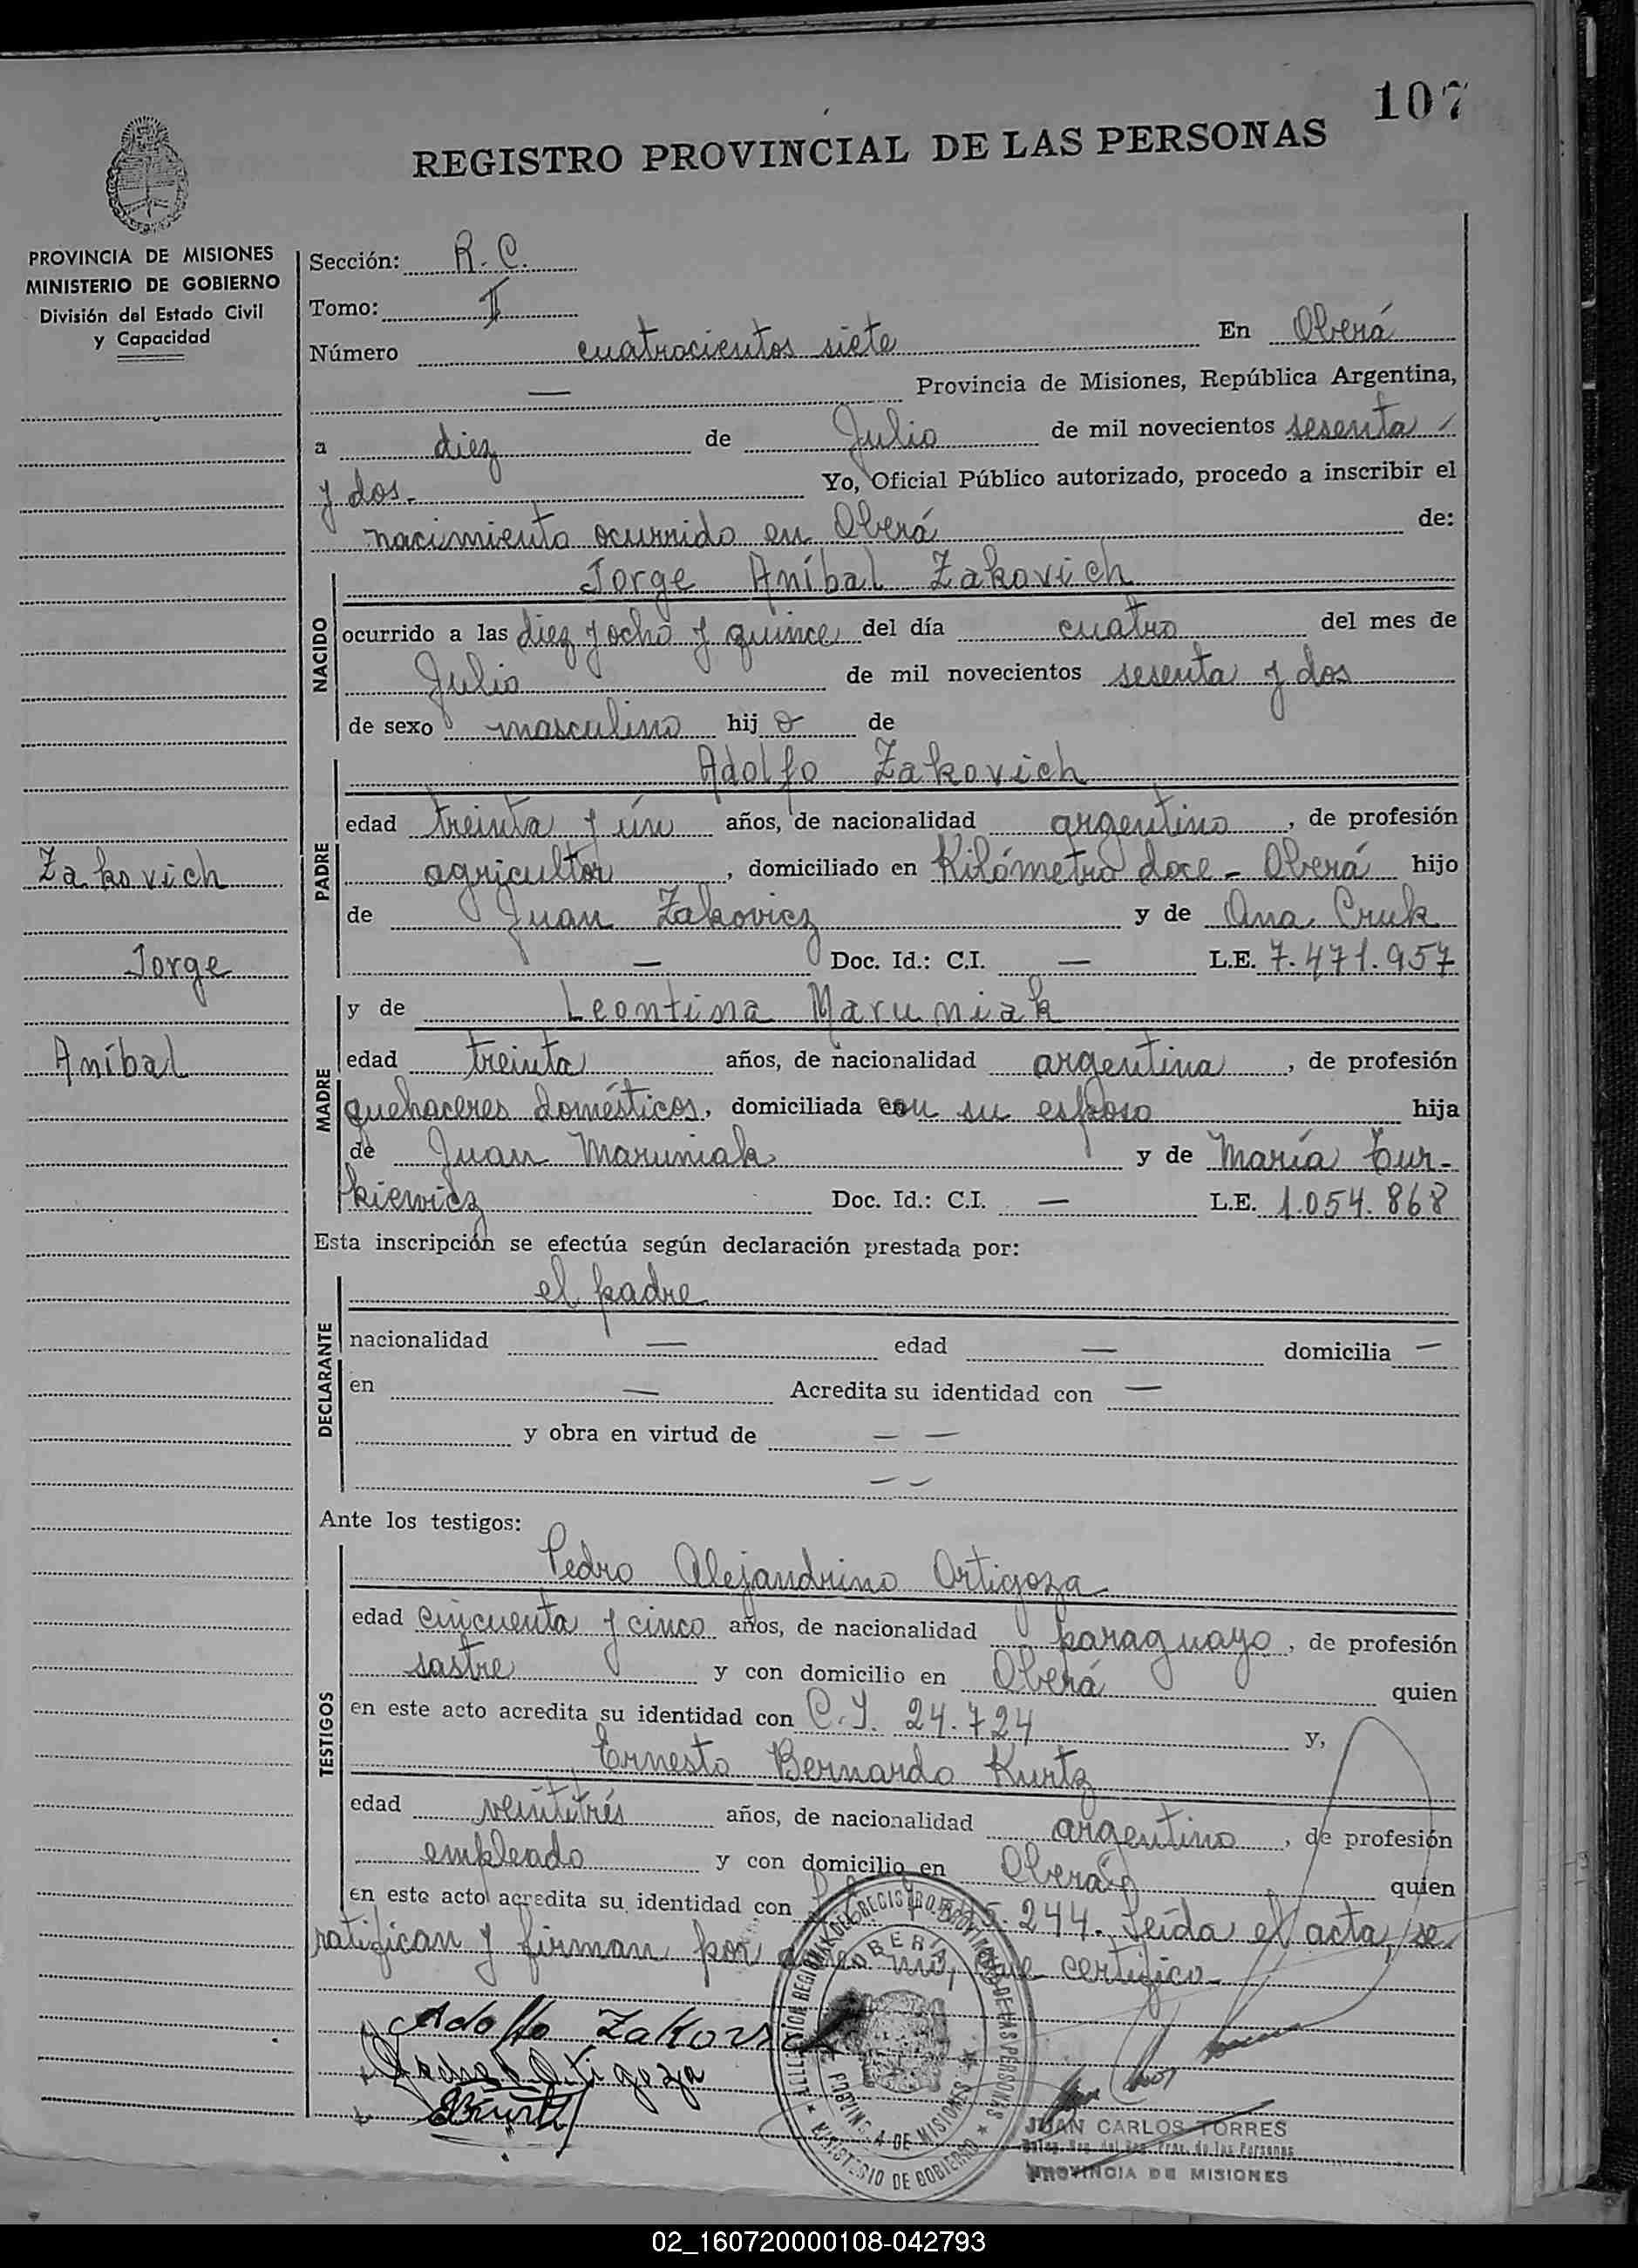 107
REGISTRO PROVINCIAL DE LAS PERSONAS
PROVINCIA DE MISIONES
MINISTERIO DE GOBIERNO
División del Estado Civil
y Capacidad
Sección: R. C.
Tomo: II
Número cuatrocientos siete En Oberá
— Provincia de Misiones, República Argentina,
a diez de Julio de mil novecientos sesenta
y dos.- Yo, Oficial Público autorizado, procedo a inscribir el
nacimiento ocurrido en Oberá de:
NACIDO
Jorge Aníbal Zakovich
ocurrido a las diez y ocho y quince del día cuatro del mes de
Julio de mil novecientos sesenta y dos
de sexo masculino hijo de
PADRE
Adolfo Zakovich
edad treinta y ún años, de nacionalidad argentino, de profesión
agricultor, domiciliado en Kilómetro doce - Oberá hijo
de Juan Zakovicz y de Ana Cruk
— Doc. Id.: C.I. — L.E. 7.471.957
Zakovich
Jorge
Aníbal
MADRE
y de Leontina Maruniak
edad treinta años, de nacionalidad argentina, de profesión
quehaceres domésticos, domiciliada con su esposo hija
de Juan Maruniak y de María Tur-
kiewicz Doc. Id.: C.I. — L.E. 1.054.868
Esta inscripción se efectúa según declaración prestada por:
DECLARANTE
el padre
nacionalidad — edad — domicilia —
en — Acredita su identidad con —
y obra en virtud de — —
— —
Ante los testigos:
TESTIGOS
Pedro Alejandrino Ortigoza
edad cincuenta y cinco años, de nacionalidad paraguayo, de profesión
sastre y con domicilio en Oberá quien
en este acto acredita su identidad con C.I. 24.724 y,
Ernesto Bernardo Kurtz
edad veintitrés años, de nacionalidad argentino, de profesión
empleado y con domicilio en Oberá quien
en este acto acredita su identidad con 244. Leída el acta, se
ratifican y firman por ante mí, que certifico.
Adolfo Zakovich
Ortigoza
DELEGACION REGIONAL DEL REGISTRO PROVINCIAL DE LAS PERSONAS
MINISTERIO DE GOBIERNO
OBERA
PROVINCIA DE MISIONES
JUAN CARLOS TORRES
Deleg. Reg. del Reg. Prov. de las Personas
PROVINCIA DE MISIONES
02_160720000108-042793